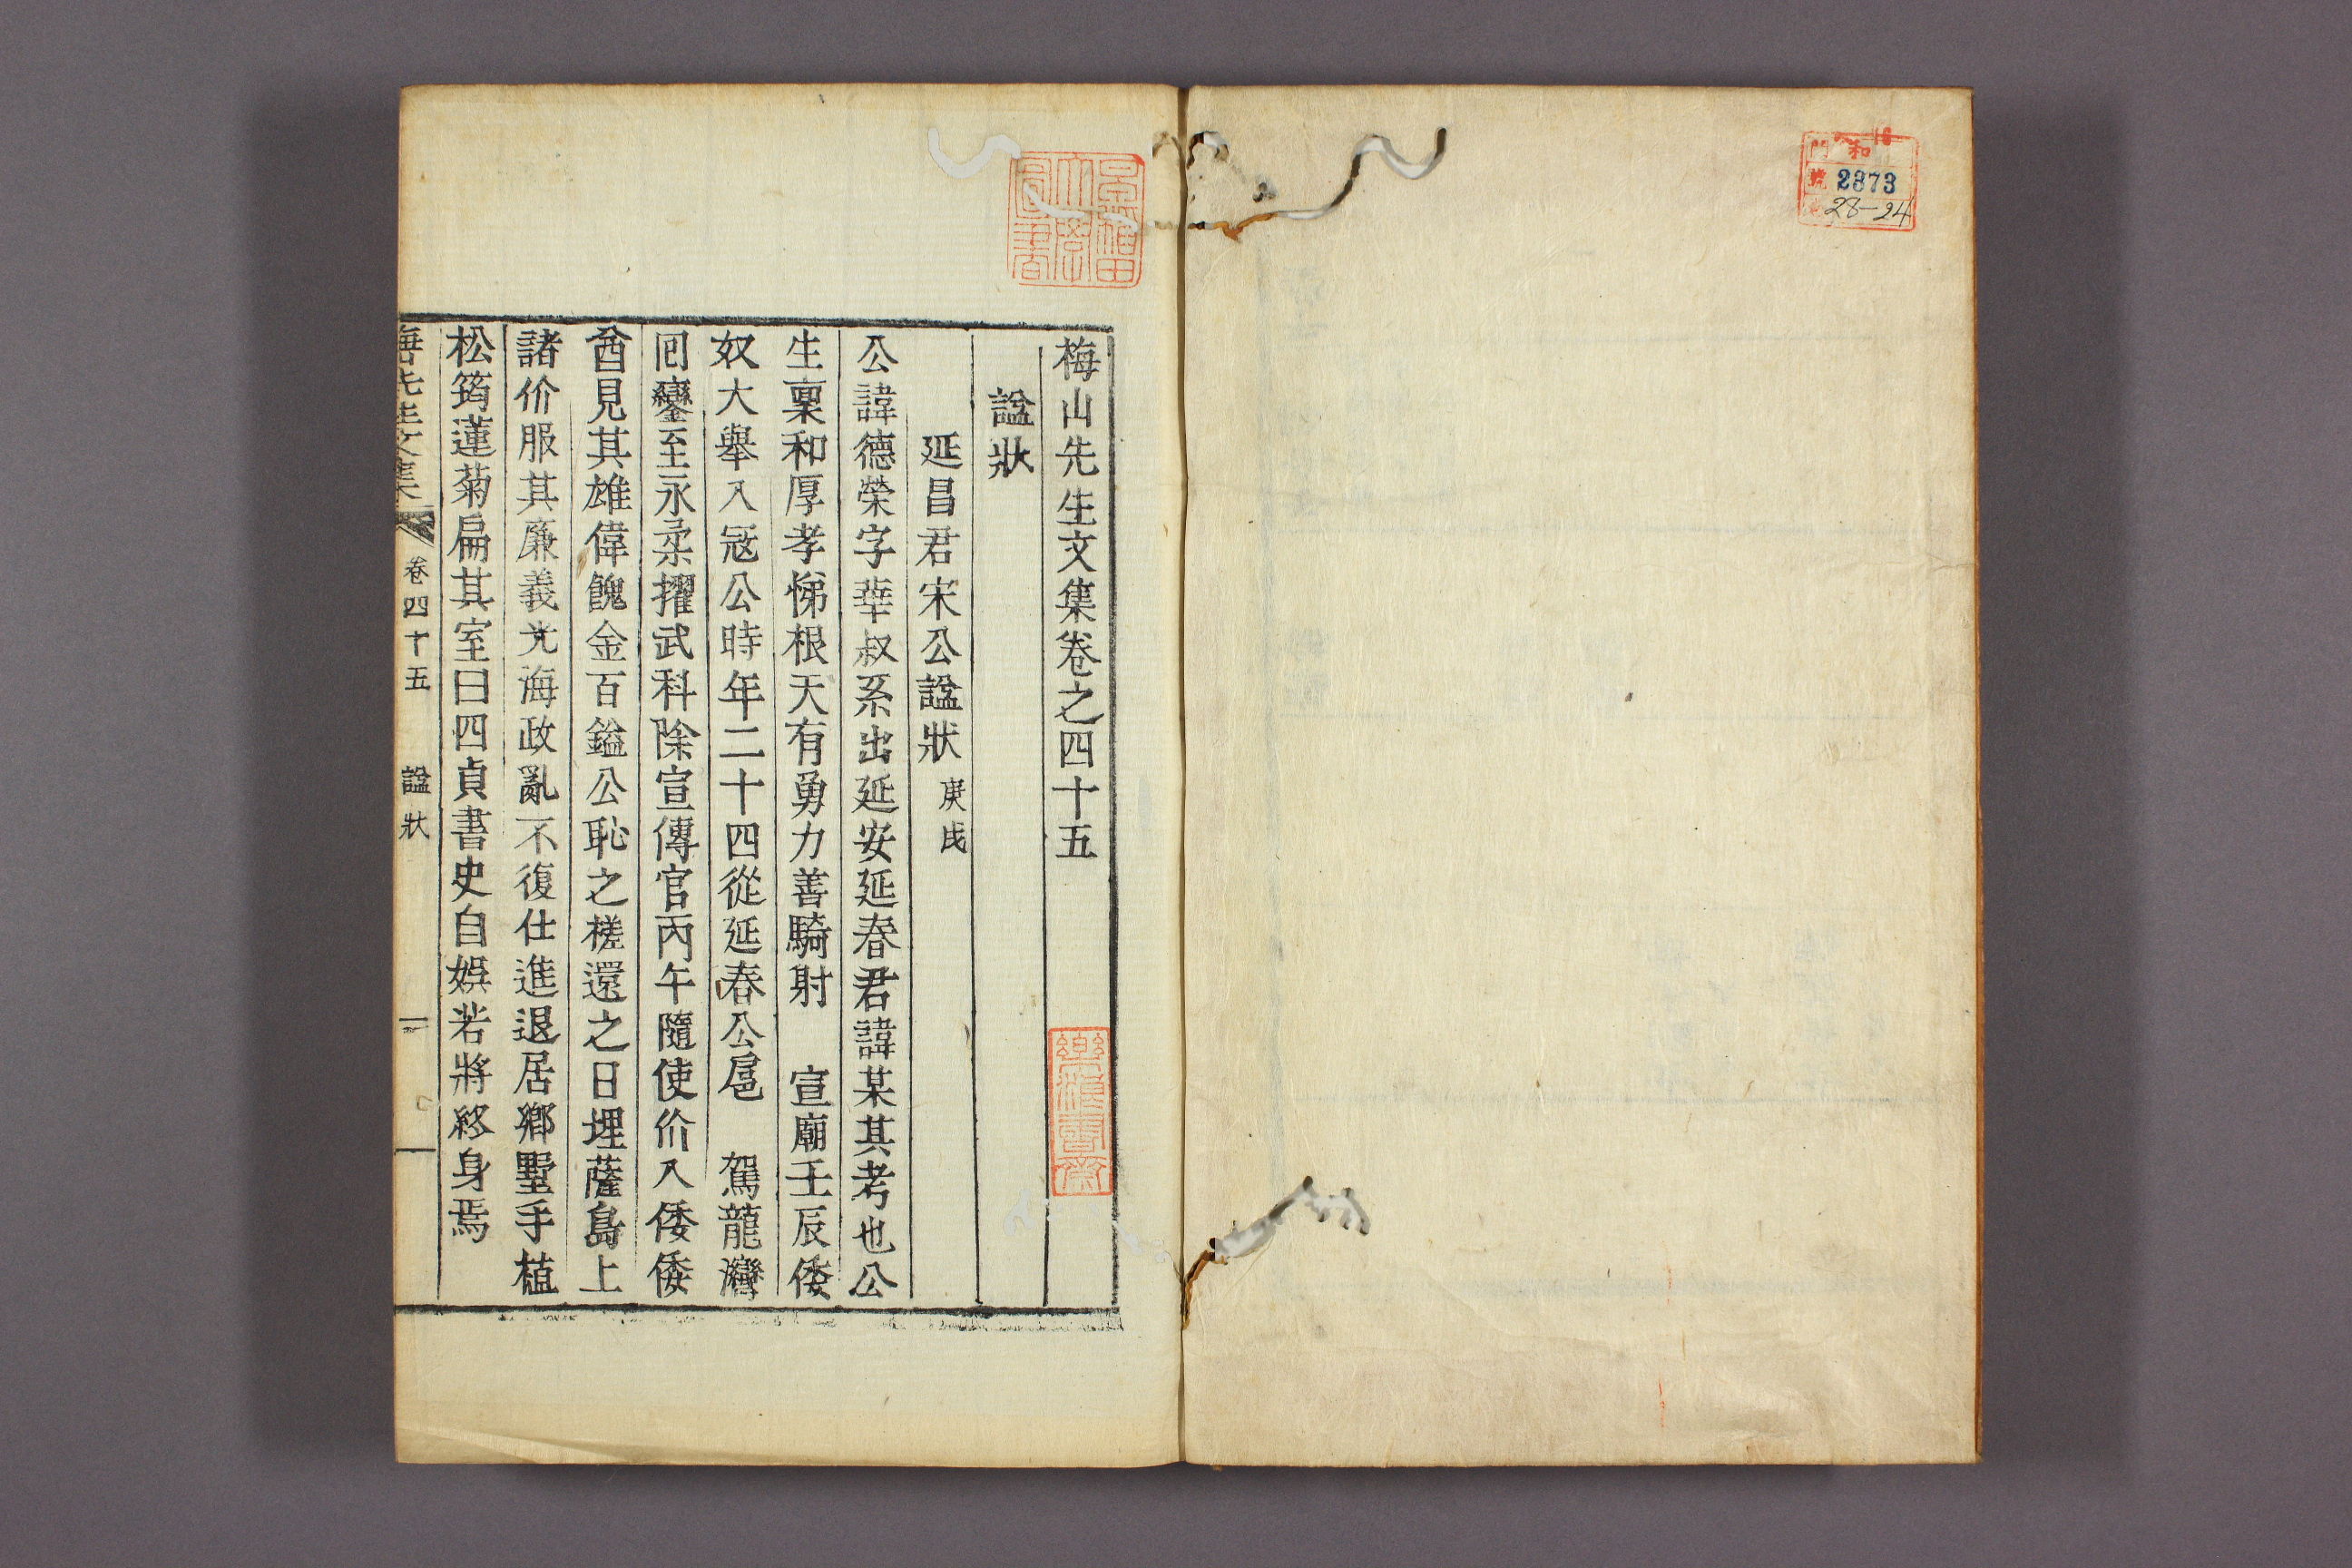 和 16
門
號 2373
28-24
梅山先生文集卷之四十五
諡狀
延昌君宋公諡狀 庚戌
公諱德榮字華叔系出延安延春君諱某其考也公
生稟和厚孝悌根天有勇力善騎射 宣廟壬辰倭
奴大舉入寇公時年二十四從延春公扈 駕龍灣
囘鑾至永柔擢武科除宣傳官丙午隨使价入倭倭
酋見其雄偉餽金百鎰公恥之槎還之日埋薩島上
諸价服其廉義光海政亂不復仕進退居鄉墅手植
松筠蓮菊扁其室曰四貞書史自娛若將終身焉
梅先生文集 卷四十五 諡狀 一
早稻田大學圖書